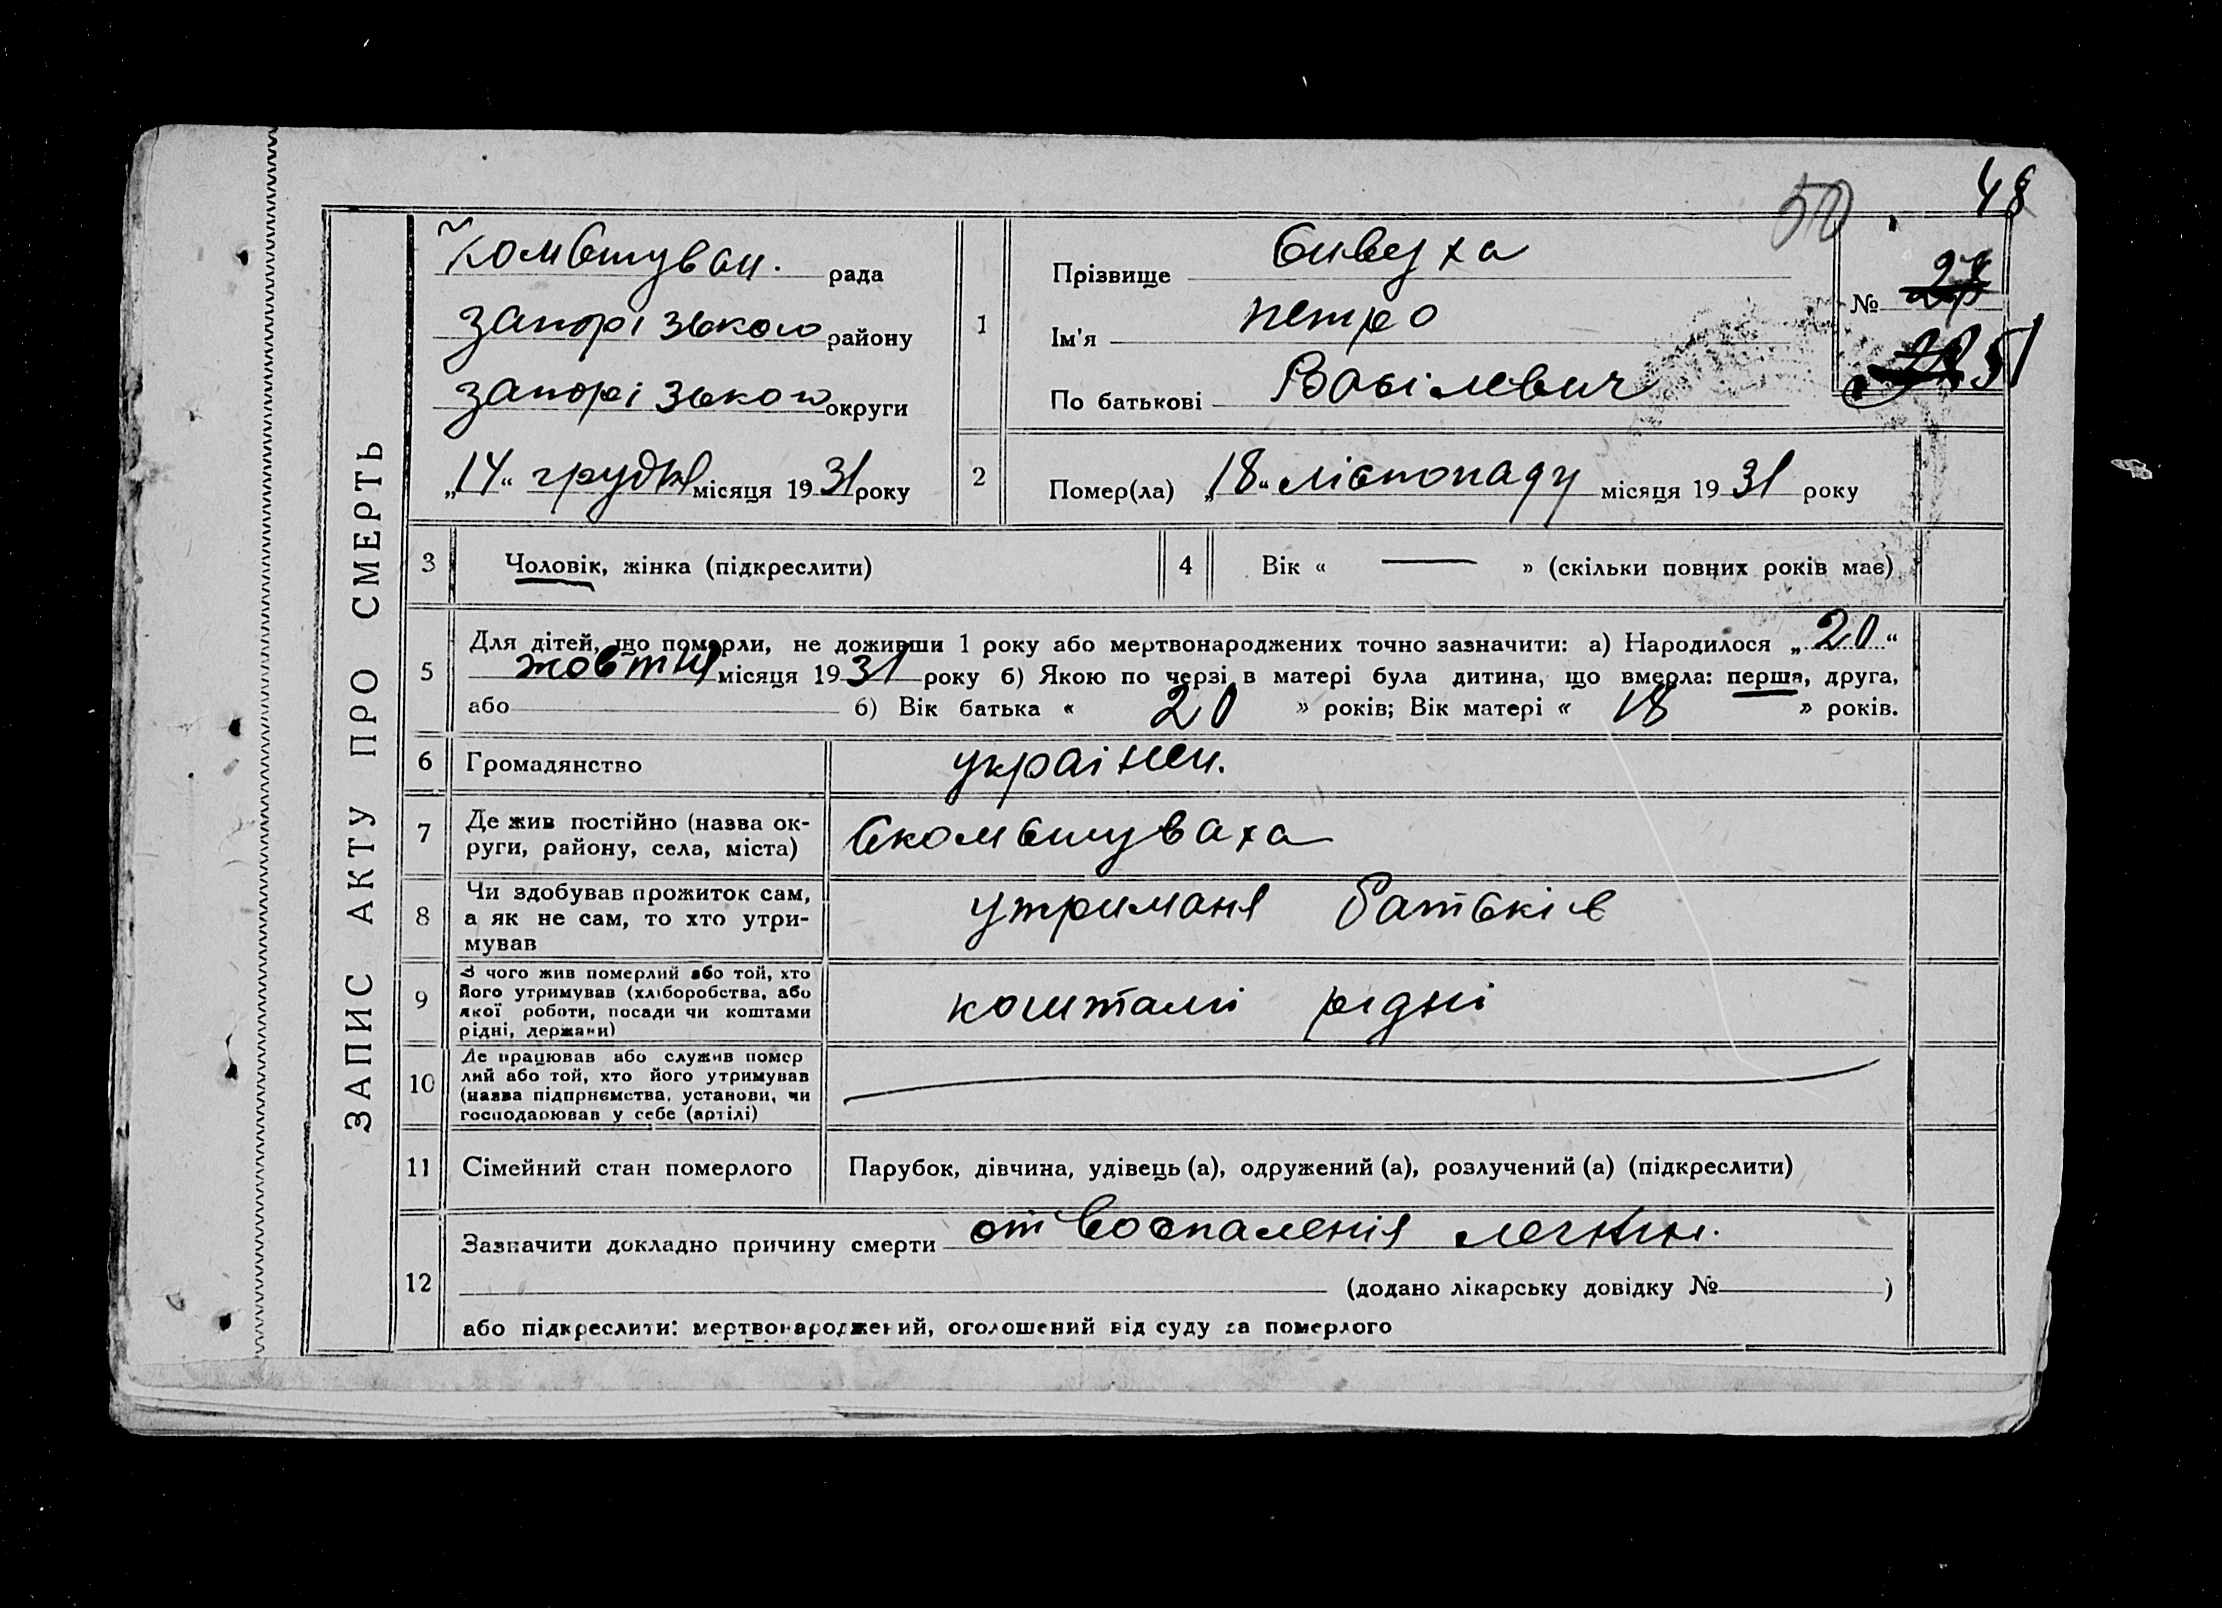 48
50
ЗАПИС АКТУ ПРО СМЕРТЬ
Комбшуван. рада
запорізького району
запорізького округи
„14“ грудня місяця 1931 року
1
Прізвище Сивуха
Ім'я петро
По батькові Васілевич
№ 27
51
2
Помер(ла) „18“ лістопаду місяця 1931 року
3 Чоловік, жінка (підкреслити)
4 Вік « — » (скільки повних років має)
5
Для дітей, що померли, не доживши 1 року або мертвонароджених точно зазначити: а) Народилося „20“
жовтня місяця 1931 року б) Якою по черзі в матері була дитина, що вмерла: перша, друга,
або б) Вік батька « 20 » років; Вік матері « 18 » років.
6 Громадянство українец.
7 Де жив постійно (назва округи, району, села, міста) Скомбшуваха
8 Чи здобував прожиток сам,
а як не сам, то хто утри-
мував
утриманя батьків
9 З чого жив померлий або той, хто
його утримував (хліборобства, або
якої роботи, посади чи коштами
рідні, держави)
коштами рідні
10 Де працював або служив помер
лий або той, хто його утримував
(назва підприємства, установи, чи
господарював у себе (артілі)
11 Сімейний стан померлого Парубок, дівчина, удівець (а), одружений (а), розлучений (а) (підкреслити)
12
Зазначити докладно причину смерти от воспаленія легких.
(додано лікарську довідку № )
або підкреслити: мертвонароджений, оголошений від суду за померлого